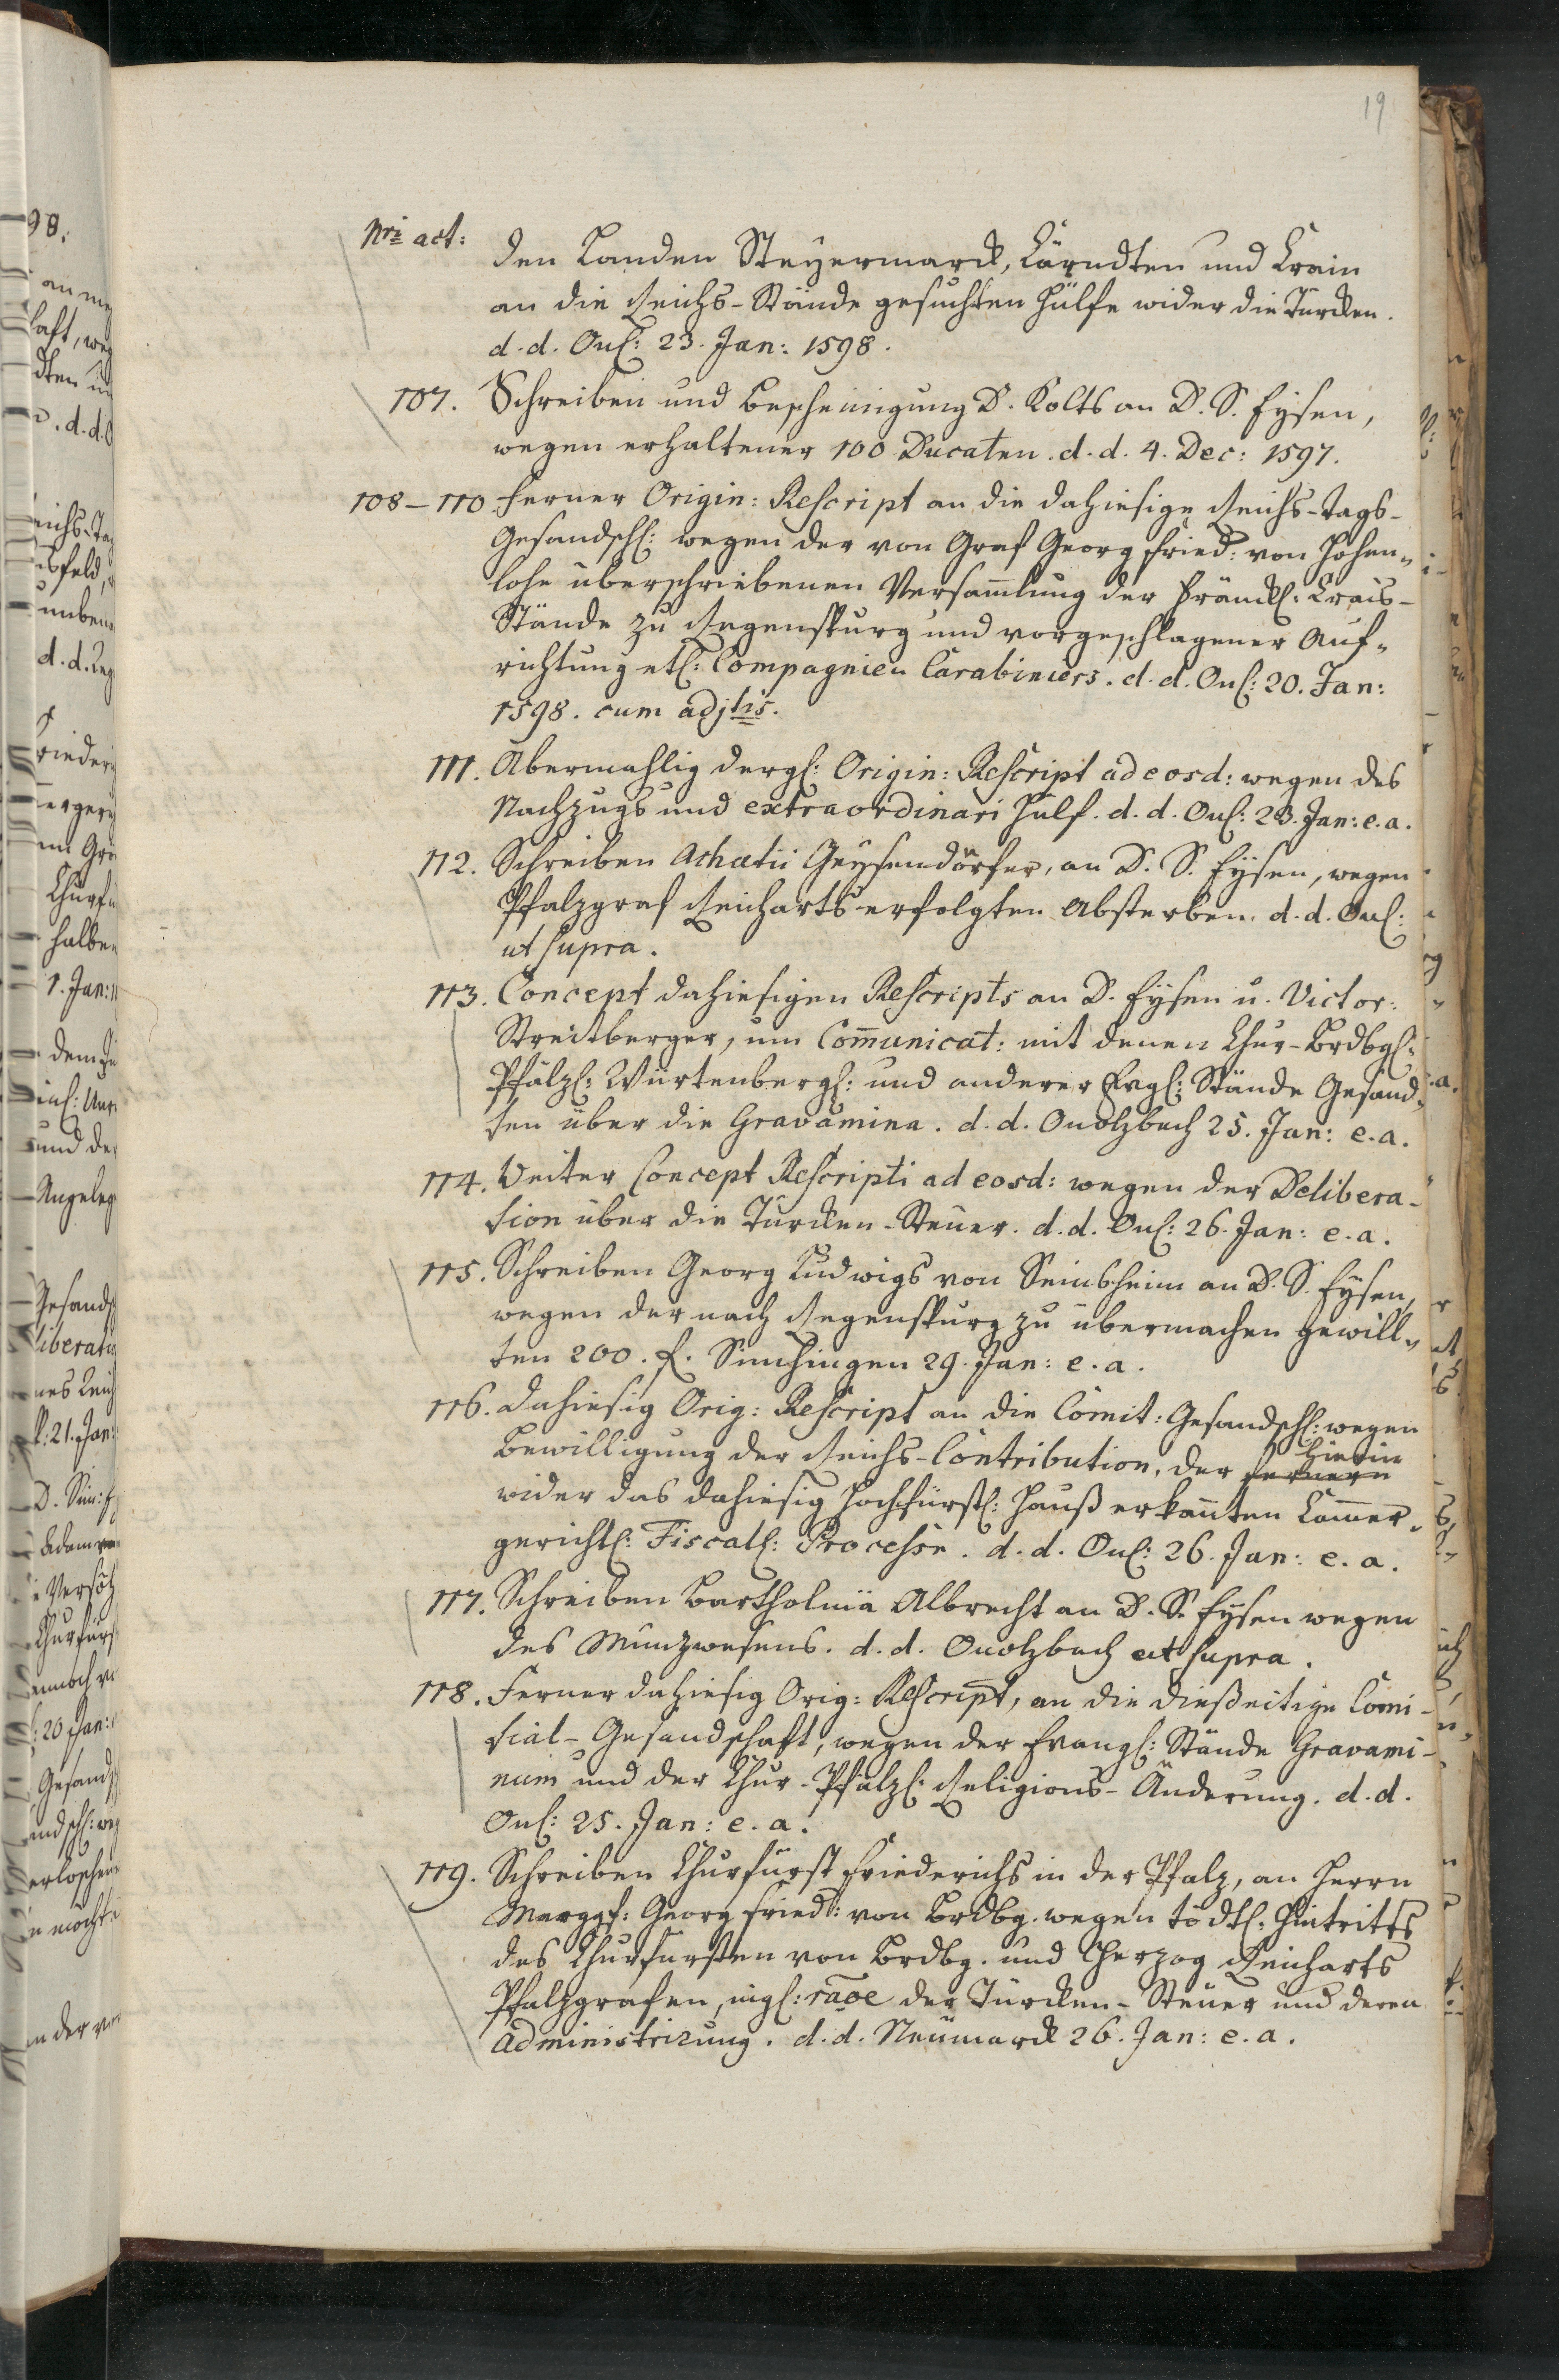 19
Nri act:
den Landen Steyermarck, Kärndten und Crain
an die Reichs-Stände gesuchten Hülfe wider die Türcken.
d. d. Onl: 23. Jan: 1598.
107. Schreiben und Bescheinigung D. Kolts an D. S. Eysen,
wegen erhaltener 100 Ducaten. d. d. 4. Dec: 1597.
108-110 Ferner Origin: Rescript an die dahiesige Reichs-Tags-
Gesandschl: wegen der von Graf Georg Fried: von Hohen-
lohe überschriebenen Versam̄lung der Fränckl: Crais-
Stände zu Regenspurg und vorgeschlagener Auf-
richtung etl: Compagnien Carabiniers. d. d. Onl: 20. Jan:
1598. cum adjtis.
111. Abermahlig dergl: Origin: Rescript ad eosd: wegen des
Nachzugs und extraordinari Hülf. d. d. Onl: 23. Jan: e. a.
112. Schreiben Achatii Geysendörfer, an D. S. Eysen, wegen
Pfalzgraf Reicharts erfolgten Absterben. d. d. Onl:
ut supra.
113. Concept dahiesigen Rescripts an D. Eysen u. Victor:
Streitberger, um Com̄unicat: mit denen Chur-Brdbgl:
Pfälzl: Würtenbergl: und anderer Evgl: Stände Gesand-
ten über die Gravamina. d. d. Onolzbach 25. Jan: e. a.
114. Weiter Concept Rescripti ad eosd: wegen der Delibera-
tion über die Türcken-Steuer. d. d. Onl: 26. Jan: e. a.
115. Schreiben Georg Ludwigs von Seinsheim an D. S. Eysen,
wegen der nach Regenspurg zu übermachen gewill-
ten 200. f. Sinchingen 29. Jan: e. a.
116. Dahiesig Orig: Rescript an die Comit: Gesandschl: wegen
Bewilligung der Reichs-Contribution, der fernern hierin
wider das dahiesig Hochfürstl: Hauß erkan̄ten Cam̄er-
gerichtl: Fiscall: Processe. d. d. Onl: 26. Jan: e. a.
117. Schreiben Bartholmä Albrecht an D. S. Eysen wegen
des Münzwesens. d. d. Onolzbach ut supra.
118. Ferner dahiesig Orig: Rescript, an die dießeitige Comi-
tial-Gesandschaft, wegen der Evangl: Stände Gravami-
num und der Chur-Pfälzl: Religions-Änderung. d. d.
Onl: 25. Jan: e. a.
119. Schreiben Churfürst Friederichs in der Pfalz, an Herrn
Marggf: Georg Fried: von Brdbg. wegen tödtl: Hintritts
des Churfürsten von Brdbg. und Herzog Reicharts
Pfalzgrafen, ingl: raōe der Türcken-Steuer und deren
Administrirung. d. d. Neumarck 26. Jan: e. a.